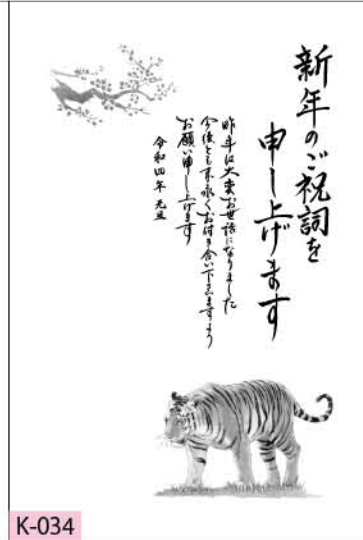 新年のご祝詞を
申し上げます
昨年は大変お世話になりました
今後とも末永くお付き合い下さいますよう
お願い申し上げます
令和四年 元旦
K-034